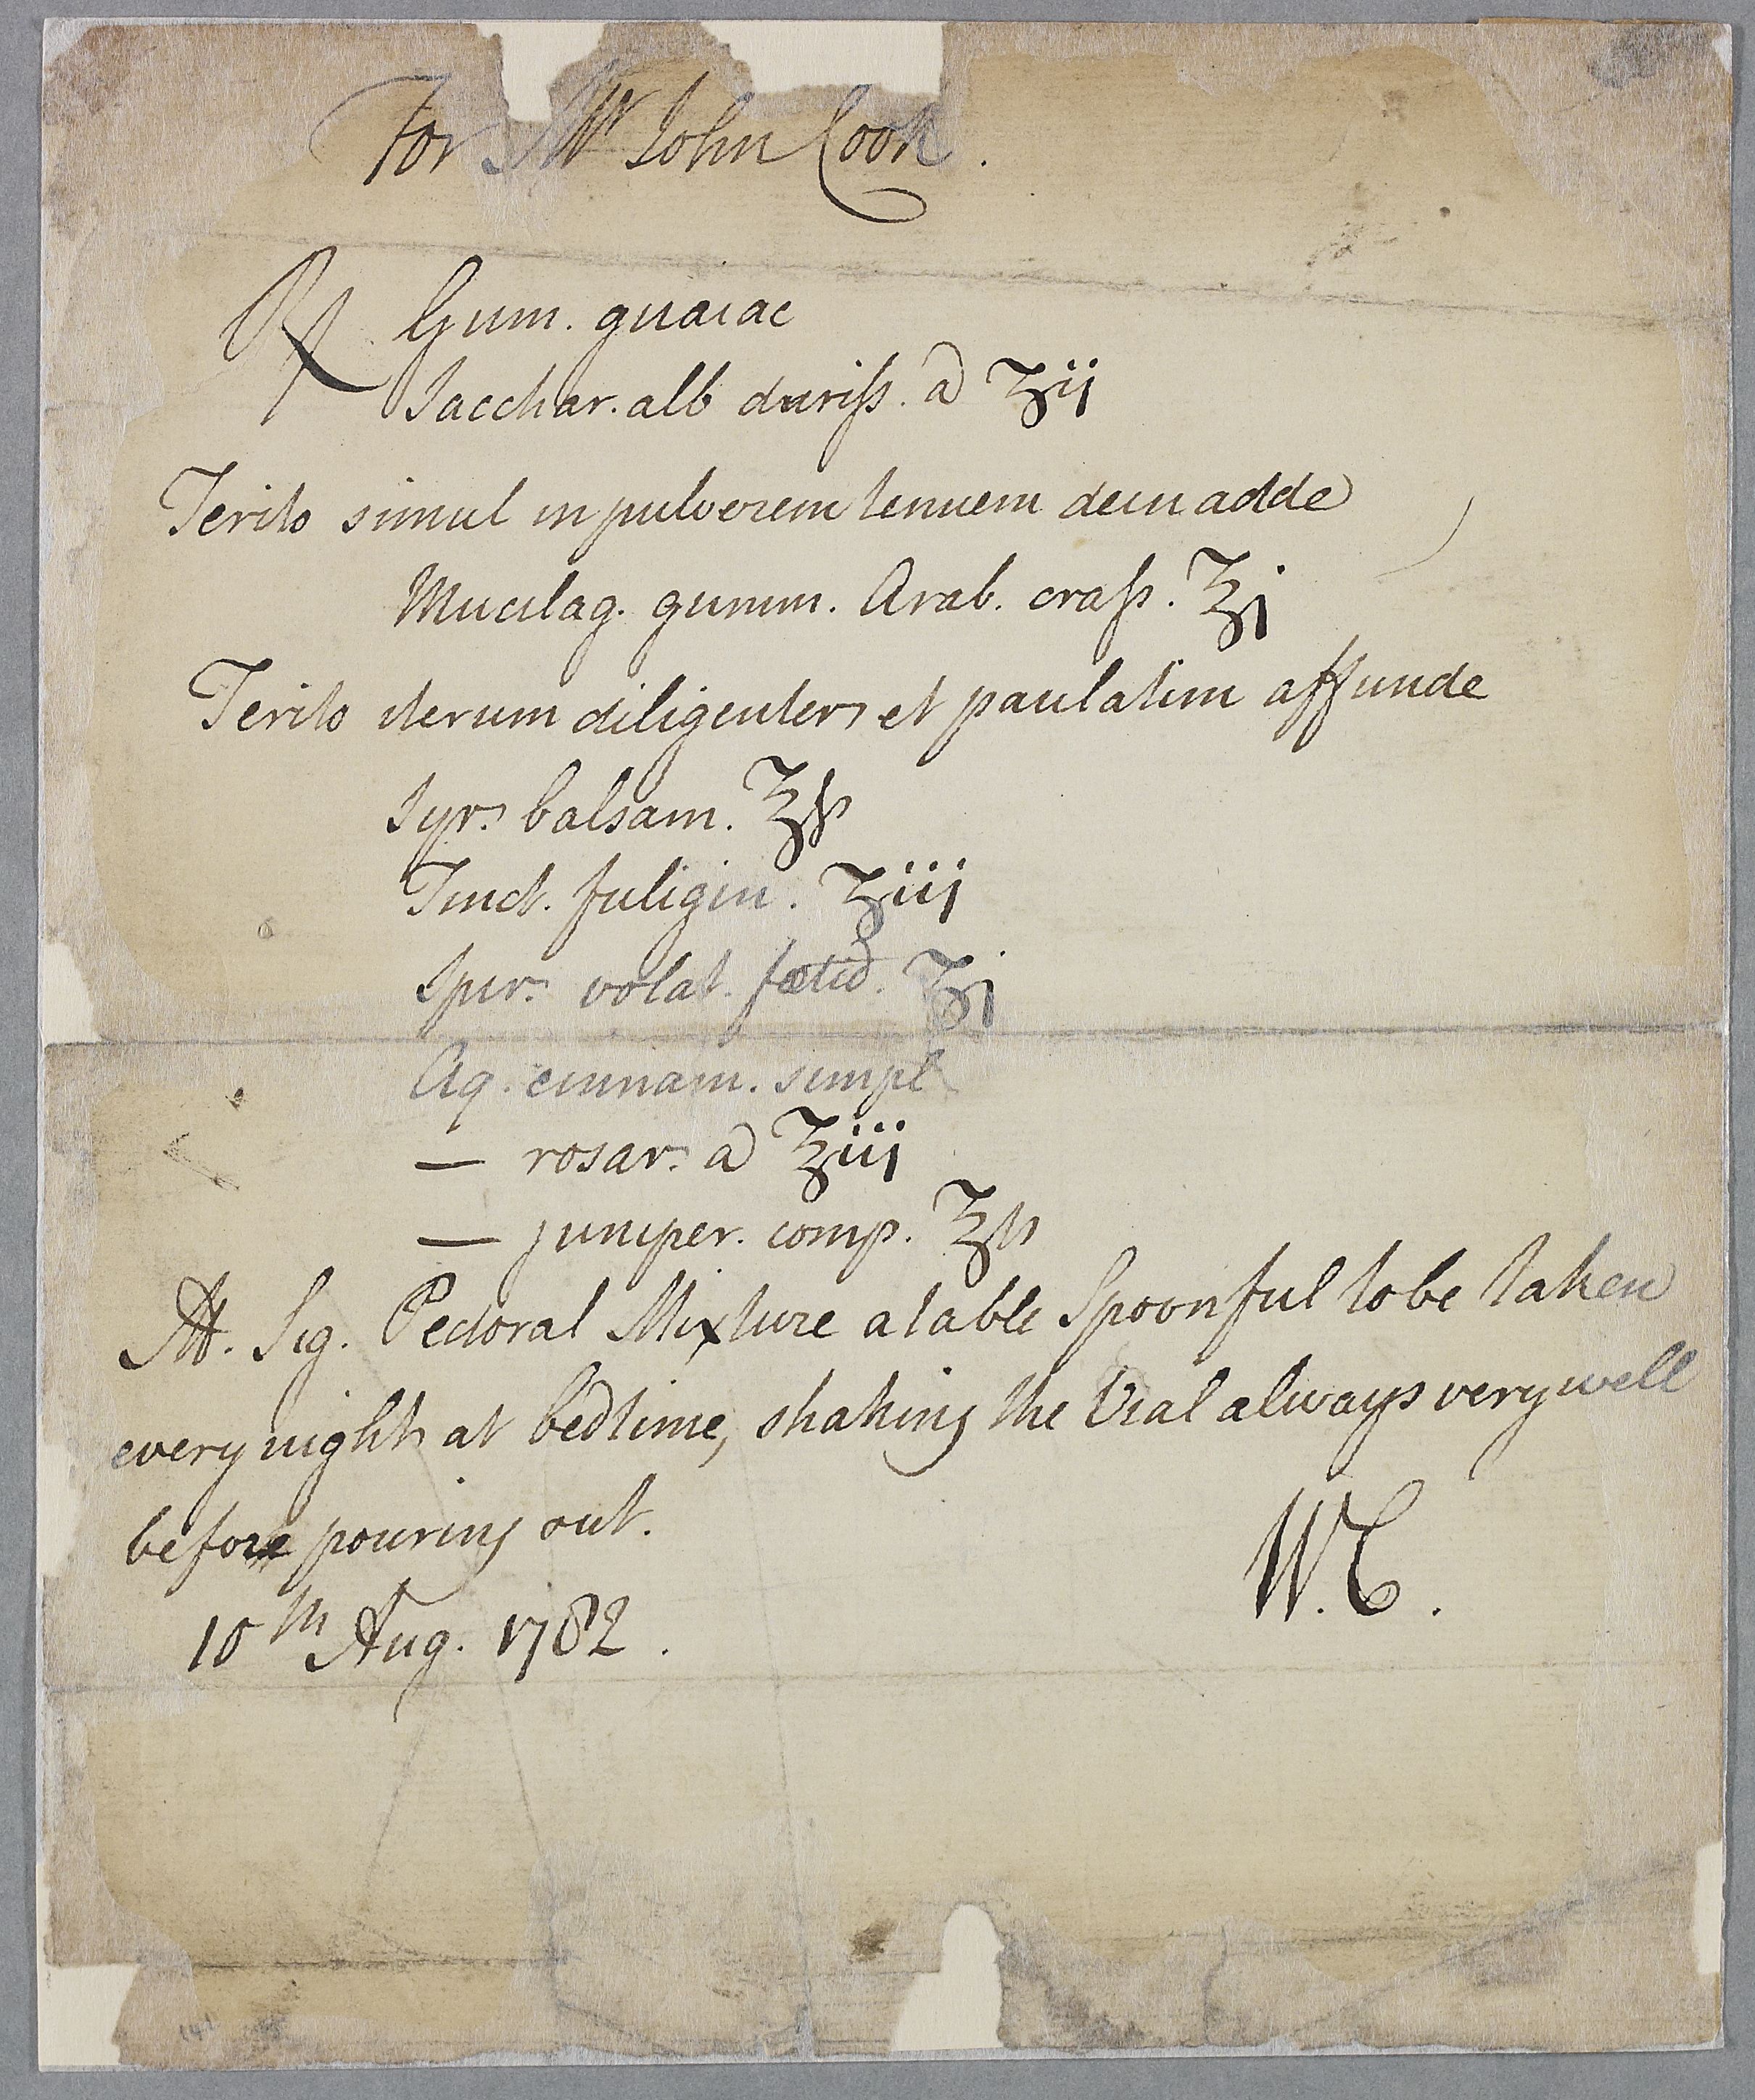 For Mr John Cook.
℞ Gum. guaiac
Sacchar. alb duriſs. a ʒij
Terito simul in pulverem tenuem dein adde
Mucilag. gumm. Arab. craſs. ℥j
Terito iterum diligenter et paulatim affunde
Syr. balsam. ℥ſs
Tinct. fuligin. ʒiij
Spir. volat. fœtid. ʒj
Aq. cinnam. simpl
— rosar. a ℥iij
— juniper. comp. ℥ſs
M. Sig. Pectoral Mixture a table Spoonful to be taken
every night at bedtime, shaking the Vial always very well
before pouring out.
W.C.
10th Aug. 1782.